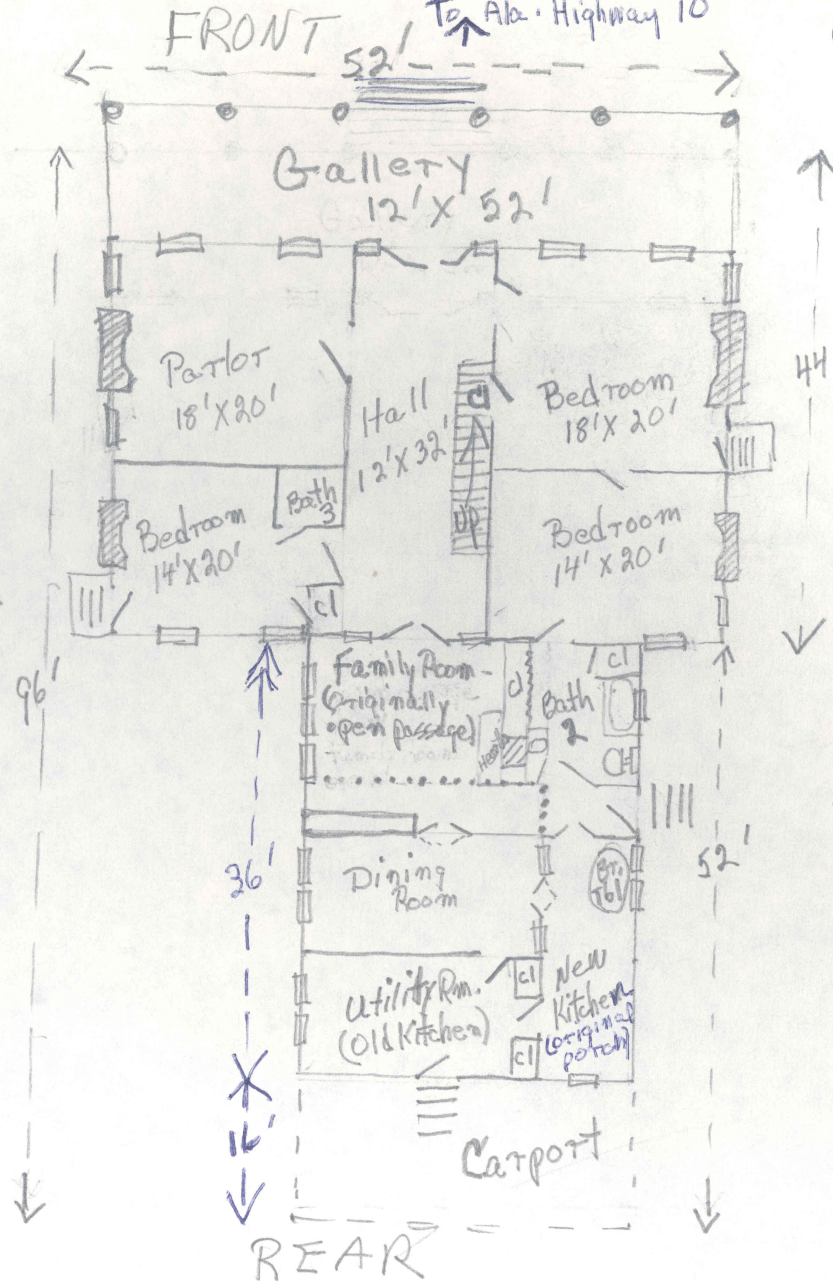 FRONT
To Ala. Highway 10
52'
Gallery
12' X 52'
Parlor
18' X 20'
Hall
12' X 32'
cl
Up
Bedroom
18' X 20'
44
Bath
3
Bedroom
14' X 20'
cl
Bedroom
14' X 20'
96'
Family Room
(Originally
open passage)
cl
Bath
2
cl
36'
52'
Dining
Room
Br.
Tbl
Utility Rm.
(Old Kitchen)
cl
cl
New
Kitchen
(original
porch)
16'
Carport
REAR